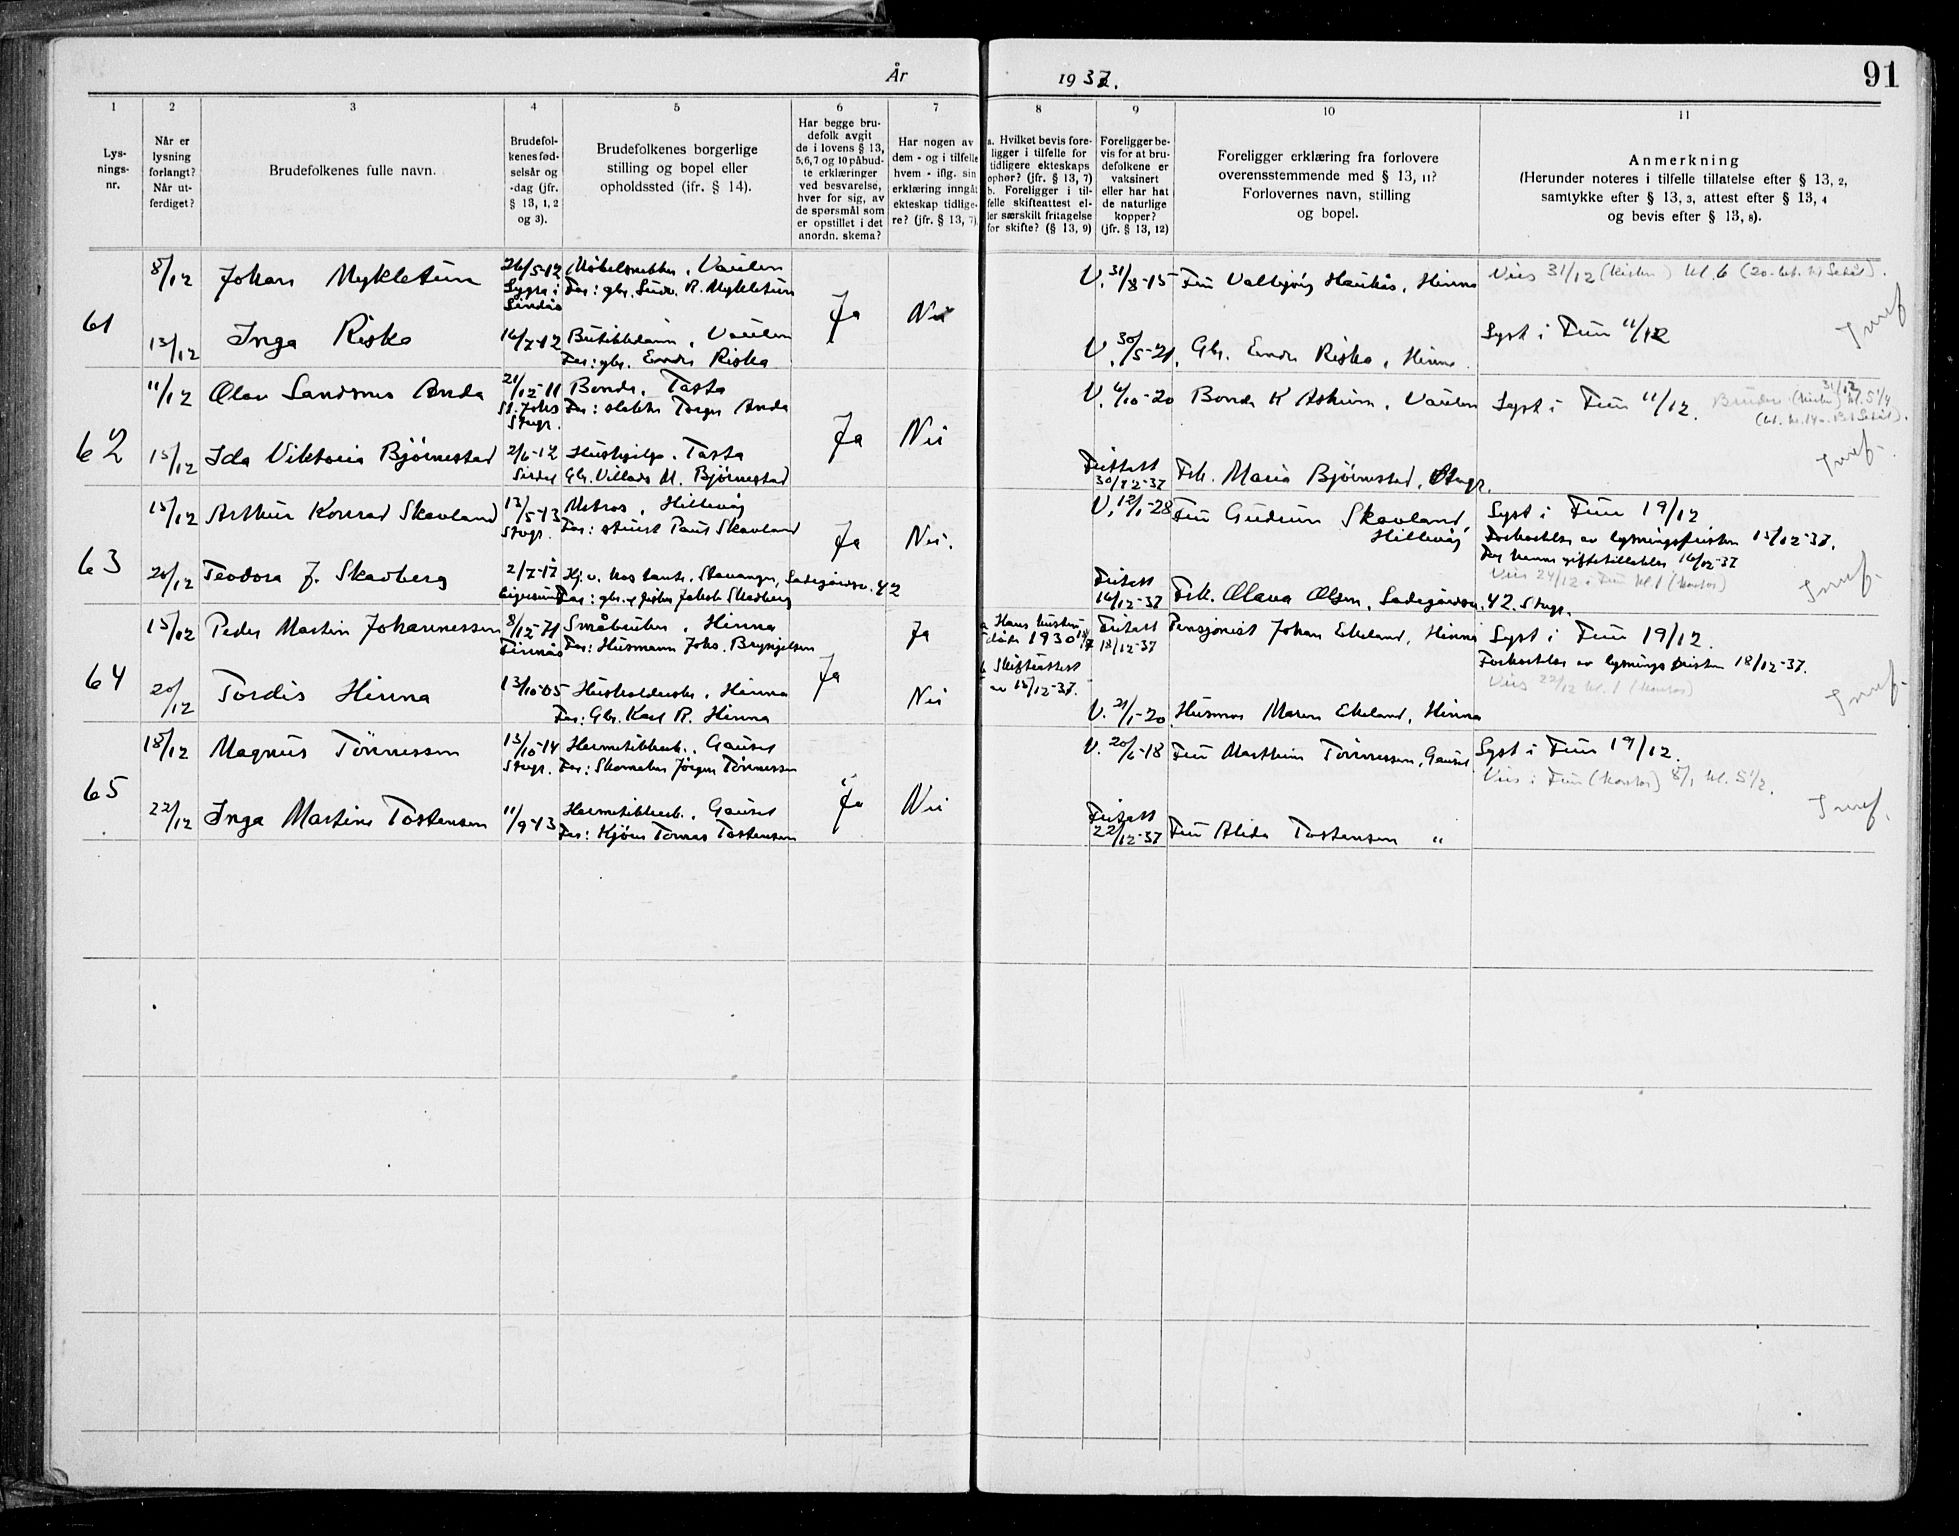 År 1937.
91
1 2 3 4 5 6 7 8 9 10 11
Lys-
nings-
nr.
Når er
lysning
forlangt?
Når ut-
ferdiget?
Brudefolkenes fulle navn.
Brudefol-
kenes fød-
selsår og
-dag (jfr.
§ 13, 1, 2
og 3).
Brudefolkenes borgerlige
stilling og bopel eller
opholdssted (jfr. § 14).
Har begge bru-
defolk avgit
de i lovens § 13,
5,6,7 og 10 påbud-
te erklæringer
ved besvarelse,
hver for sig, av
de spørsmål som
er opstillet i det
anordn. skema?
Har nogen av
dem - og i tilfelle
hvem - iflg. sin
erklæring inngått
ekteskap tidlige-
re? (jfr. § 13, 7).
a. Hvilket bevis fore-
ligger i tilfelle for
tidligere ekteskaps
ophør? (jfr. § 13, 7)
b. Foreligger i til-
felle skifteattest el-
ler særskilt fritagelse
for skifte? (§ 13, 9)
Foreligger be-
vis for at bru-
defolkene er
vaksinert
eller har hat
de naturlige
kopper?
(jfr. § 13, 12)
Foreligger erklæring fra forlovere
overensstemmende med § 13, 11?
Forlovernes navn, stilling
og bopel.
Anmerkning
(Herunder noteres i tilfelle tillatelse efter § 13, 2,
samtykke efter § 13, 3, attest efter § 13, 4
og bevis efter § 13, 8).
61
8/12 Johan Mykletun 26/5-12 Møbelsnekker, Vaulen
Far: gbr. R. Mykletun
Ja Nei
V. 31/8-15 Fru Valbjørg Haukås, Hinna
Vies 31/12 (kirken) kl. 6
13/12 Inga Riska 16/7-12 Butikkdame, Vaulen
Far: gbr. Endre Riska
V. 30/5-21. Gbr. Endre Riska, Hinna
Lyst i Frue 11/12
62
11/12 Olav Sandsnes Anda 21/12-11 Bonde, Tasta
St. Johs Stvgr. Far: Torger Anda
Ja Nei
V. 6/10-20 Bonde K Askum, Vaulen
Lyst i Frue 11/12. 31/12 (kirken) kl. 5 1/4
15/12 Ida Viktoria Bjørnestad 2/6-12 Hushjelp, Tasta
Sirdal Gbr. Villads M. Bjørnestad
Fritatt
30/12-37 Frk. Maria Bjørnestad, Stvgr.
63
15/12 Arthur Konrad Skavland 13/5-13 Matros, Hillevåg
Stvgr. Far: Skavland
Ja Nei.
V. 12/1-28 Fru Gudrun Skavland,
Hillevåg
Lyst i Frue 19/12
Forkortelse av lysningsfristen 15/12-37.
16/12-37
Vies 24/12 i Frue kl. 1 (kontor)
20/12 Teodora J. Skadberg 2/7-17 Hj. v. hos tante, Stavanger, Ladegårdsv. 42
Eigersund Far: gbr. og fisker Jakob Skadberg
Fritatt
16/12-37 Frk. Olava Olsen, Ladegårdsv. 42, Stvgr.
64
15/12 Peder Martin Johannessen 8/12-71 Småbruker, Hinna
Far: Husmann Johs. Brynjelsen
Ja
Ja
a Hans hustru
døde 1930
b Skifteattest
av 15/12-37.
Fritatt
18/12-37 Pensjonist Johan Ekeland, Hinna
Lyst i Frue 19/12.
Forkortelse av lysningsfristen 18/12-37.
Vies 22/12 kl. 1 (kontor)
20/12 Tordis Hinna 13/10-05 Husholderske, Hinna
Far: Gbr. Karl R. Hinna
Nei
V. 21/1-20. Husmor Maren Ekeland, Hinna
65
18/12 Magnus Tønnessen 13/10-14 Hermetikkarb., Gausel
Stvgr. Far: Skomaker Jørgen Tønnessen
Ja Nei
V. 20/6-18 Fru Marthine Tønnessen, Gausel
Lyst i Frue 19/12.
Vies i Frue (kontor) 8/1 kl. 5 1/2.
22/12 Inga Martine Tostensen 11/9-13 Hermetikkarb., Gausel
Far: Tomas Tostensen
Fritatt
22/12-37 Fru Alida Tostensen "